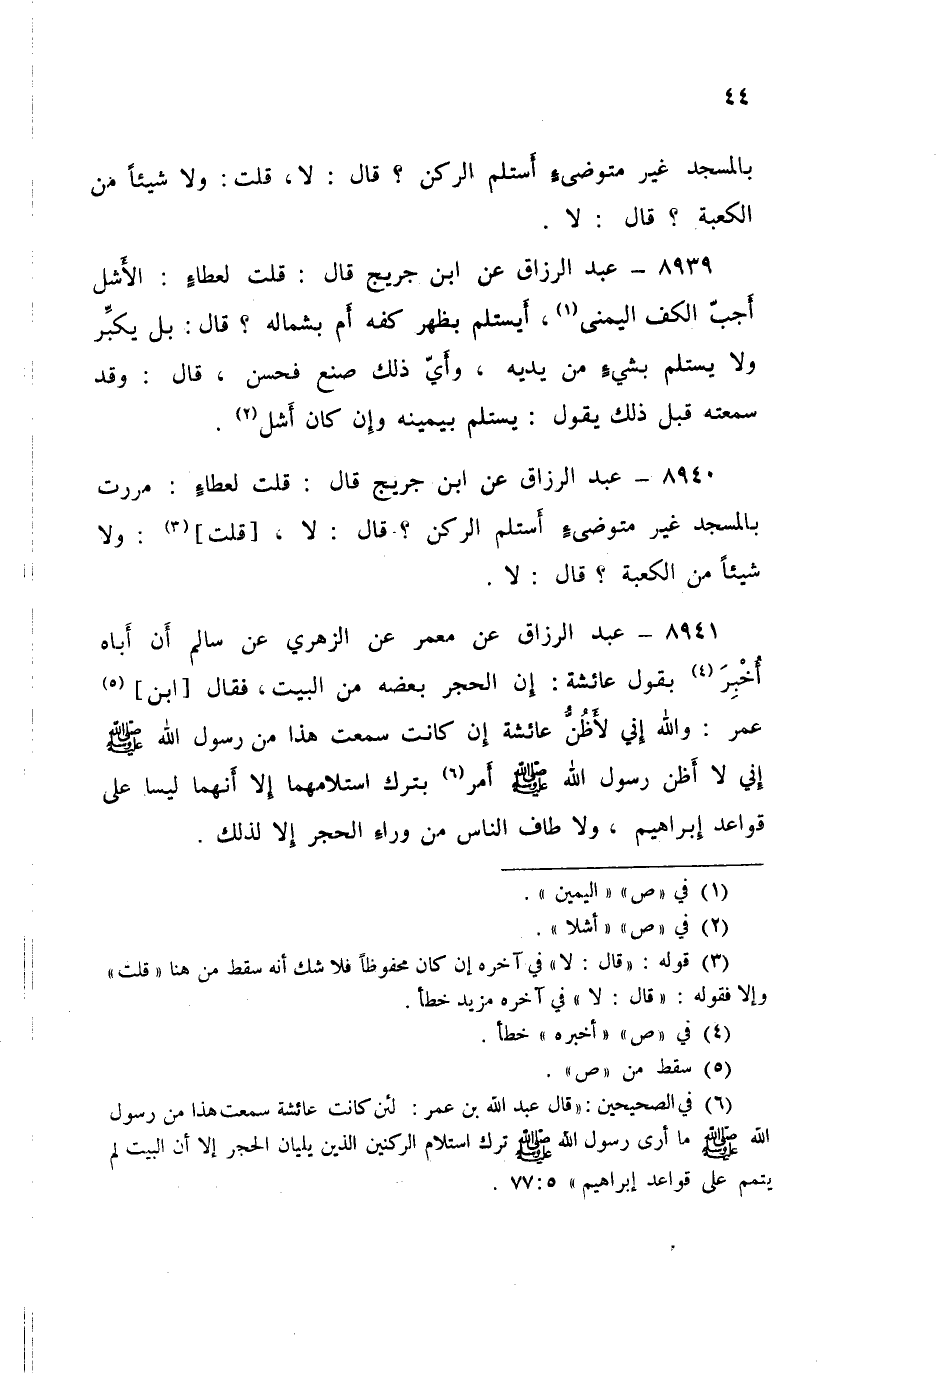 ٤٤
بالمسجد غير متوضىءٍ أستلم الركن ؟ قال : لا، قلت : ولا شيئاً من
الكعبة ؟ قال : لا .
٨٩٣٩ – عبد الرزاق عن ابن جريج قال : قلت لعطاءٍ : الأشل
أجبّ الكف اليمنى(١)، أيستلم بظهر كفه أم بشماله ؟ قال : بل يكبِّر
ولا يستلم بشيءٍ من يديه ، وأيّ ذلك صنع فحسن ، قال : وقد
سمعته قبل ذلك يقول : يستلم بيمينه وإن كان أشل(٢) .
٨٩٤٠ – عبد الرزاق عن ابن جريج قال : قلت لعطاءٍ : مررت
بالمسجد غير متوضىءٍ أستلم الركن ؟ قال : لا ، [قلت](٣) : ولا
شيئاً من الكعبة ؟ قال : لا .
٨٩٤١ – عبد الرزاق عن معمر عن الزهري عن سالم أن أباه
أُخْبِرَ(٤) بقول عائشة : إن الحجر بعضه من البيت، فقال [ابن](٥)
عمر : والله إني لأَظُنُّ عائشة إن كانت سمعت هذا من رسول الله ﷺ
إني لا أظن رسول الله ﷺ أمر(٦) بترك استلامهما إلا أنهما ليسا على
قواعد إبراهيم ، ولا طاف الناس من وراءِ الحجر إلا لذلك .
(١) في «ص» « اليمين » .
(٢) في «ص» « أشلا » .
(٣) قوله : «قال : لا» في آخره إن كان محفوظاً فلا شك أنه سقط من هنا « قلت»
وإلا فقوله : « قال : لا » في آخره مزيد خطأ .
(٤) في «ص» « أخبره » خطأ .
(٥) سقط من «ص» .
(٦) في الصحيحين : «قال عبد الله بن عمر : لئن كانت عائشة سمعت هذا من رسول
الله ﷺ ما أرى رسول الله ﷺ ترك استلام الركنين الذين يليان الحجر إلا أن البيت لم
يتمم على قواعد إبراهيم » ٥ : ٧٧ .